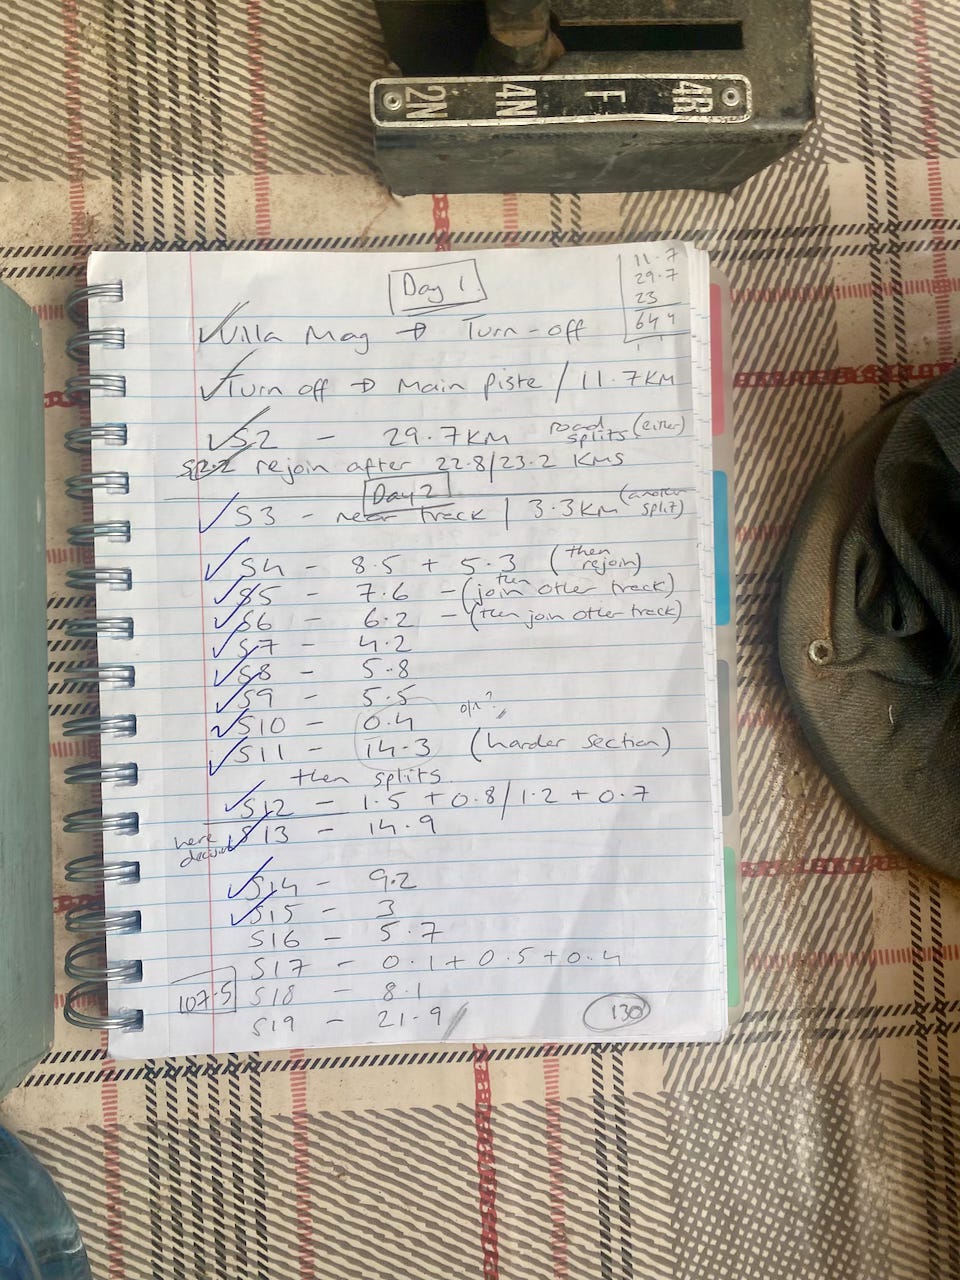 2N 4N F 4R
Day 1
11.7
29.7
23
64.4
Villa Mag → Turn-off
Turn off → Main piste / 11.7KM
S2 - 29.7KM road splits (either)
S2.2 rejoin after 22.8/23.2 KMS
Day 2
S3 - near track | 3.3KM (another split)
S4 - 8.5 + 5.3 (then rejoin)
S5 - 7.6 - (then join other track)
S6 - 6.2 - (then join other track)
S7 - 4.2
S8 - 5.8
S9 - 5.5
S10 - 0.4
S11 - 14.3 (harder section)
then splits.
S12 - 1.5 + 0.8/1.2 + 0.7
S13 - 14.9
here
S14 - 9.2
S15 - 3
S16 - 5.7
S17 - 0.1 + 0.5 + 0.4
107.5 S18 - 8.1
S19 - 21.9
130